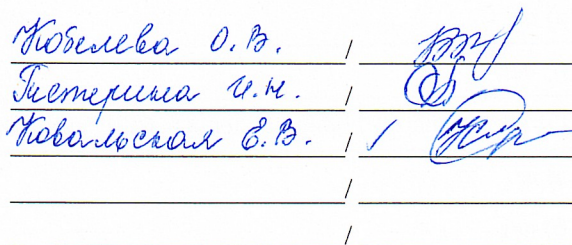 Кобелева О.В. /
Пастерина И.Н. /
Ковальская Е.В. /
/
/